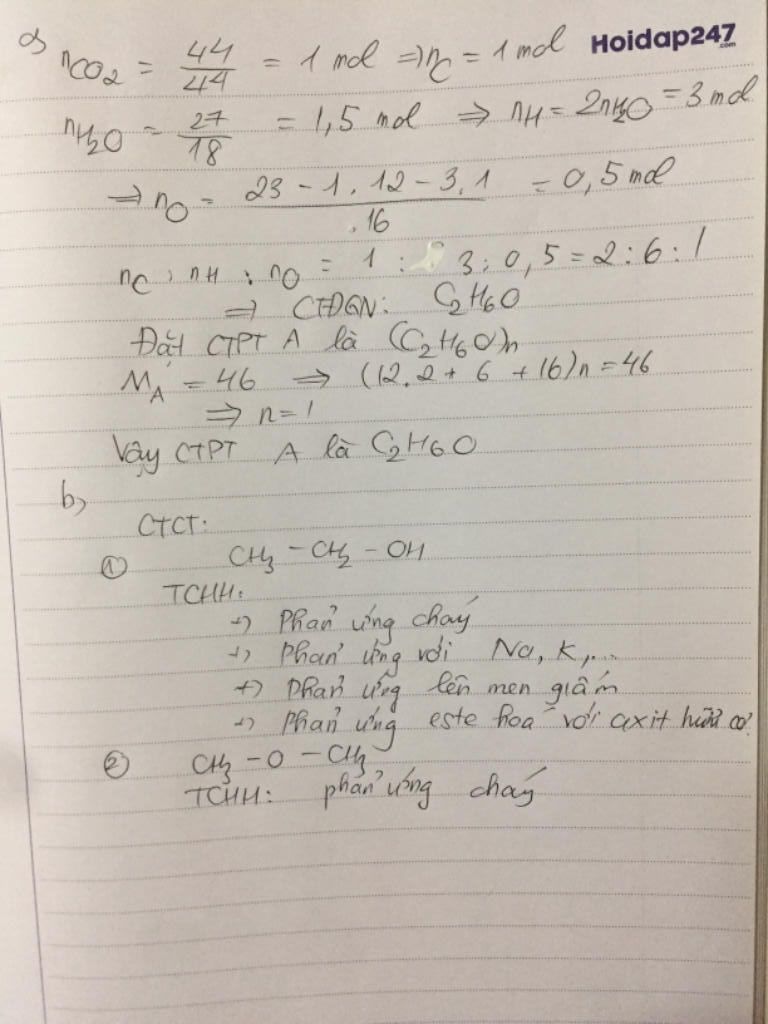 a) nCO2 = 44/44 = 1 mol ⇒ nC = 1 mol
Hoidap247.com
nH2O = 27/18 = 1,5 mol ⇒ nH = 2nH2O = 3 mol
⇒ nO = (23 - 1.12 - 3.1)/.16 = 0,5 mol
nC : nH : nO = 1 : 3 : 0,5 = 2 : 6 : 1
⇒ CTĐGN: C2H6O
Đặt CTPT A là (C2H6O)n
MA = 46 ⇒ (12.2 + 6 + 16)n = 46
⇒ n = 1
Vậy CTPT A là C2H6O
b)
CTCT:
① CH3 - CH2 - OH
TCHH:
+) Phản ứng cháy
+) Phản ứng với Na, K,...
+) Phản ứng lên men giấm
+) Phản ứng este hoá với axit hữu cơ
② CH3 - O - CH3
TCHH: phản ứng cháy